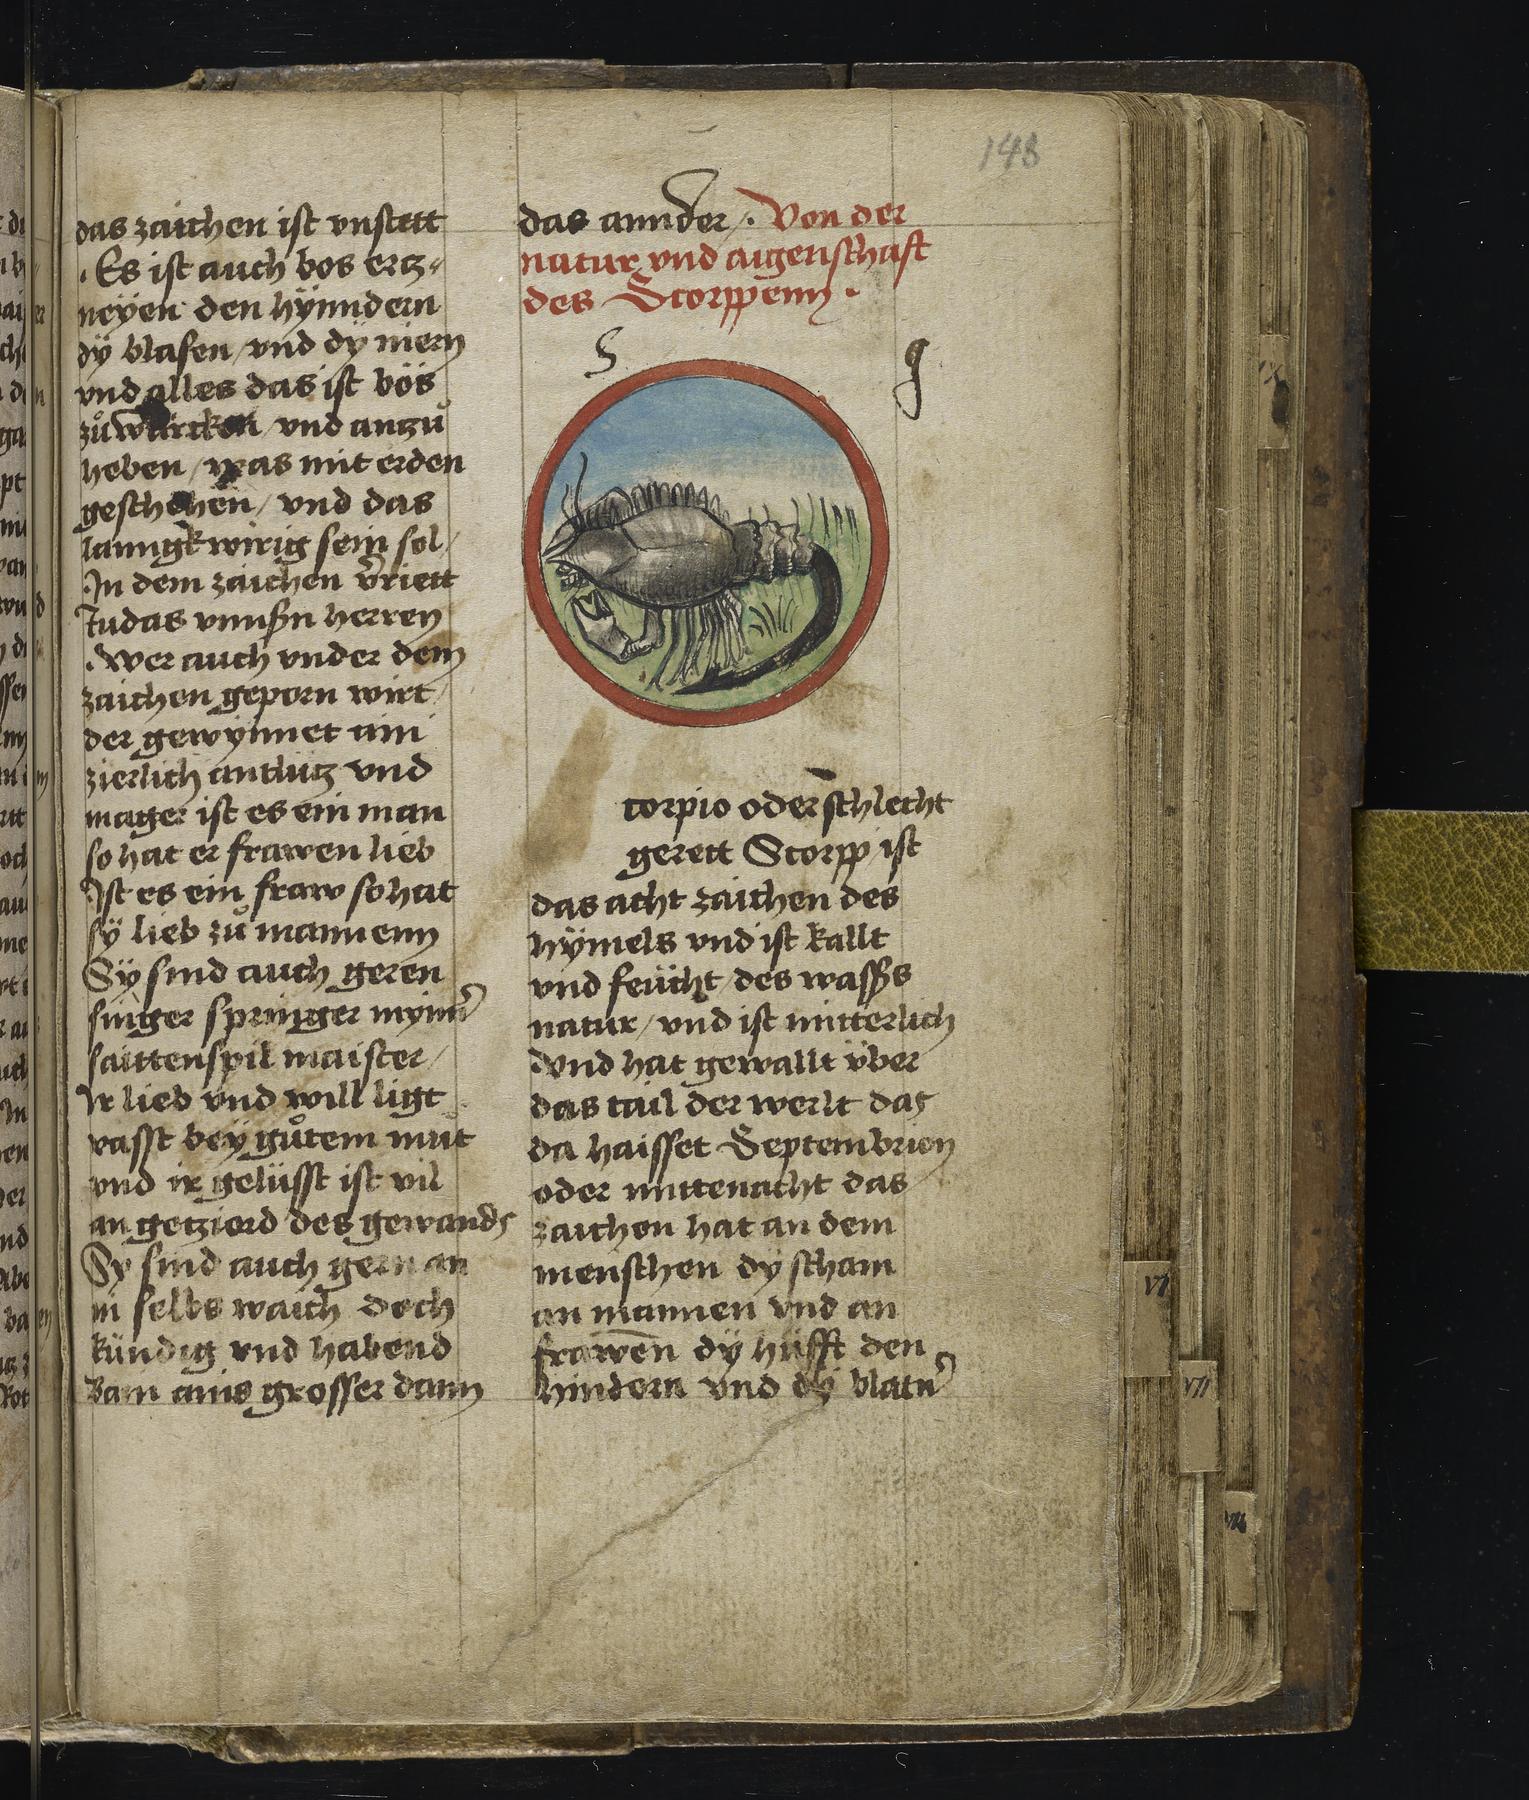 148
das zaichen ist vnstett
. Es ist auch bos ertz-
neyen den hÿnndern
dÿ blasen / vnd dÿ niern
vnd alles das ist bös
zů würcken / vnd antzů
heben / was mit erden
geschehen / vnd das
lanngkwirig sein sol /
. In dem zaichen v̄riett
Judas vnnsern herren
. Wer auch vnder dem
zaichen geporn wirt /
der gewynnet ain
zierlich antlütz vnd
mager ist es ein man
so hat er frawen lieb
Ist es ein fraw so hat
sÿ lieb zů mannenn
Sÿ sind auch geren
singer springer
saittenspil maister /
Ir lieb vnd will ligt
vasst beÿ gůtem můt
vnd ir gelüsst ist vil
an getzierd des gewands
Sy sind auch gern an
in selbs waich doch
kündig vnd habend
ains grosser dann
das annder /. Von der
natur vnd aigenschaft
des Scorppenn .
S
g
corpio oder schlecht
gerett Scorpp ist
das acht zaichen des
hÿmels vnd ist kallt
vnd feücht / des wassers
natur / vnd ist mitterlich
vnd hat gewallt über
das tail der werlt das
da haisset Septembrien
oder mittenacht das
zaichen hat an dem
menschen dÿ scham
an mannen vnd an
frawen̄ dÿ hüfft den
hindern vnd dÿ blatn̄
VI
VII